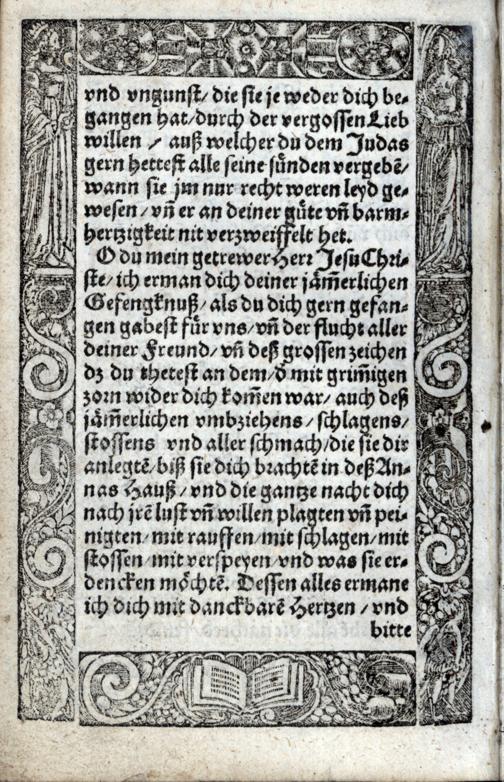 vnd vngunst/ die sie je weder dich be-
gangen hat/ durch der vergossen Lieb
willen / auß welcher du dem Judas
gern hettest alle seine sünden vergebẽ/
wann sie jm nur recht weren leyd ge-
wesen/ vñ er an deiner güte vñ barm-
hertzigkeit nit verzweiffelt het.
O du mein getrewer Herr Jesu Chri-
ste/ ich erman dich deiner jäm̃erlichen
Gefengknuß/ als du dich gern gefan-
gen gabest für vns/ vñ der flucht aller
deiner Freund/ vñ deß grossen zeichen
dz du thetest an dem/ d̕ mit grim̃igen
zorn wider dich kom̃en war/ auch deß
jäm̃erlichen vmbziehens/ schlagens/
stossens vnd aller schmach/ die sie dir
anlegtẽ/ biß sie dich brachtẽ in deß An-
nas Hauß/ vnd die gantze nacht dich
nach jrẽ lust vñ willen plagten vñ pei-
nigten/ mit rauffen/ mit schlagen/ mit
stossen/ mit verspeyen/ vnd was sie er-
dencken möchtẽ. Dessen alles ermane
ich dich mit danckbarẽ Hertzen / vnd
bitte